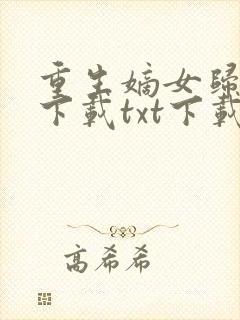 重生嫡女归
下载txt下载
高希希